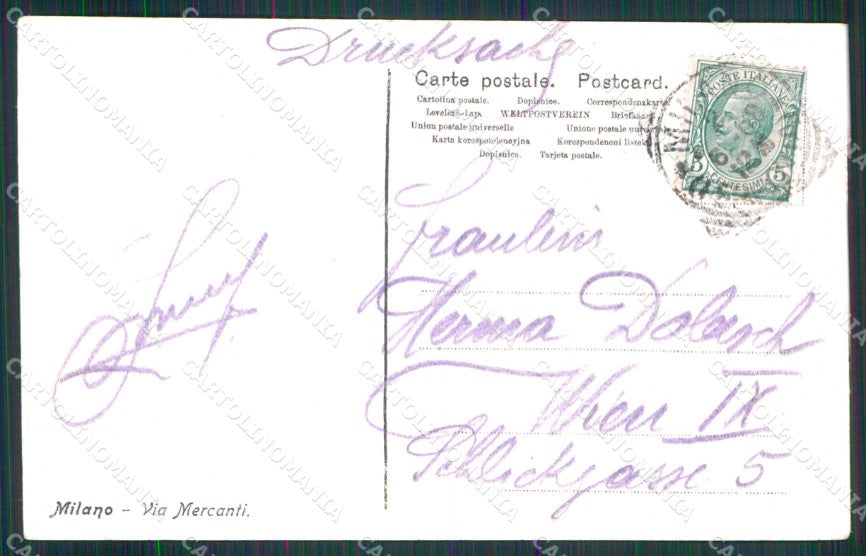 Drucksache
Carte postale. Postcard.
Cartolina postale. Dopisnice. Correspondenzkarte.
Levelező-Lap. WELTPOSTVEREIN Briefkaart
Union postale universelle Unione postale
Karta korespondencyjna Korespondencni listek
Dopisnica. Tarjeta postale.
POSTE ITALIANE
5 CENTESIMI 5
Fräulein
Herma Dolesch
Wien IX
Schlickgasse 5
Milano – Via Mercanti.
CARTOLINOMANIA